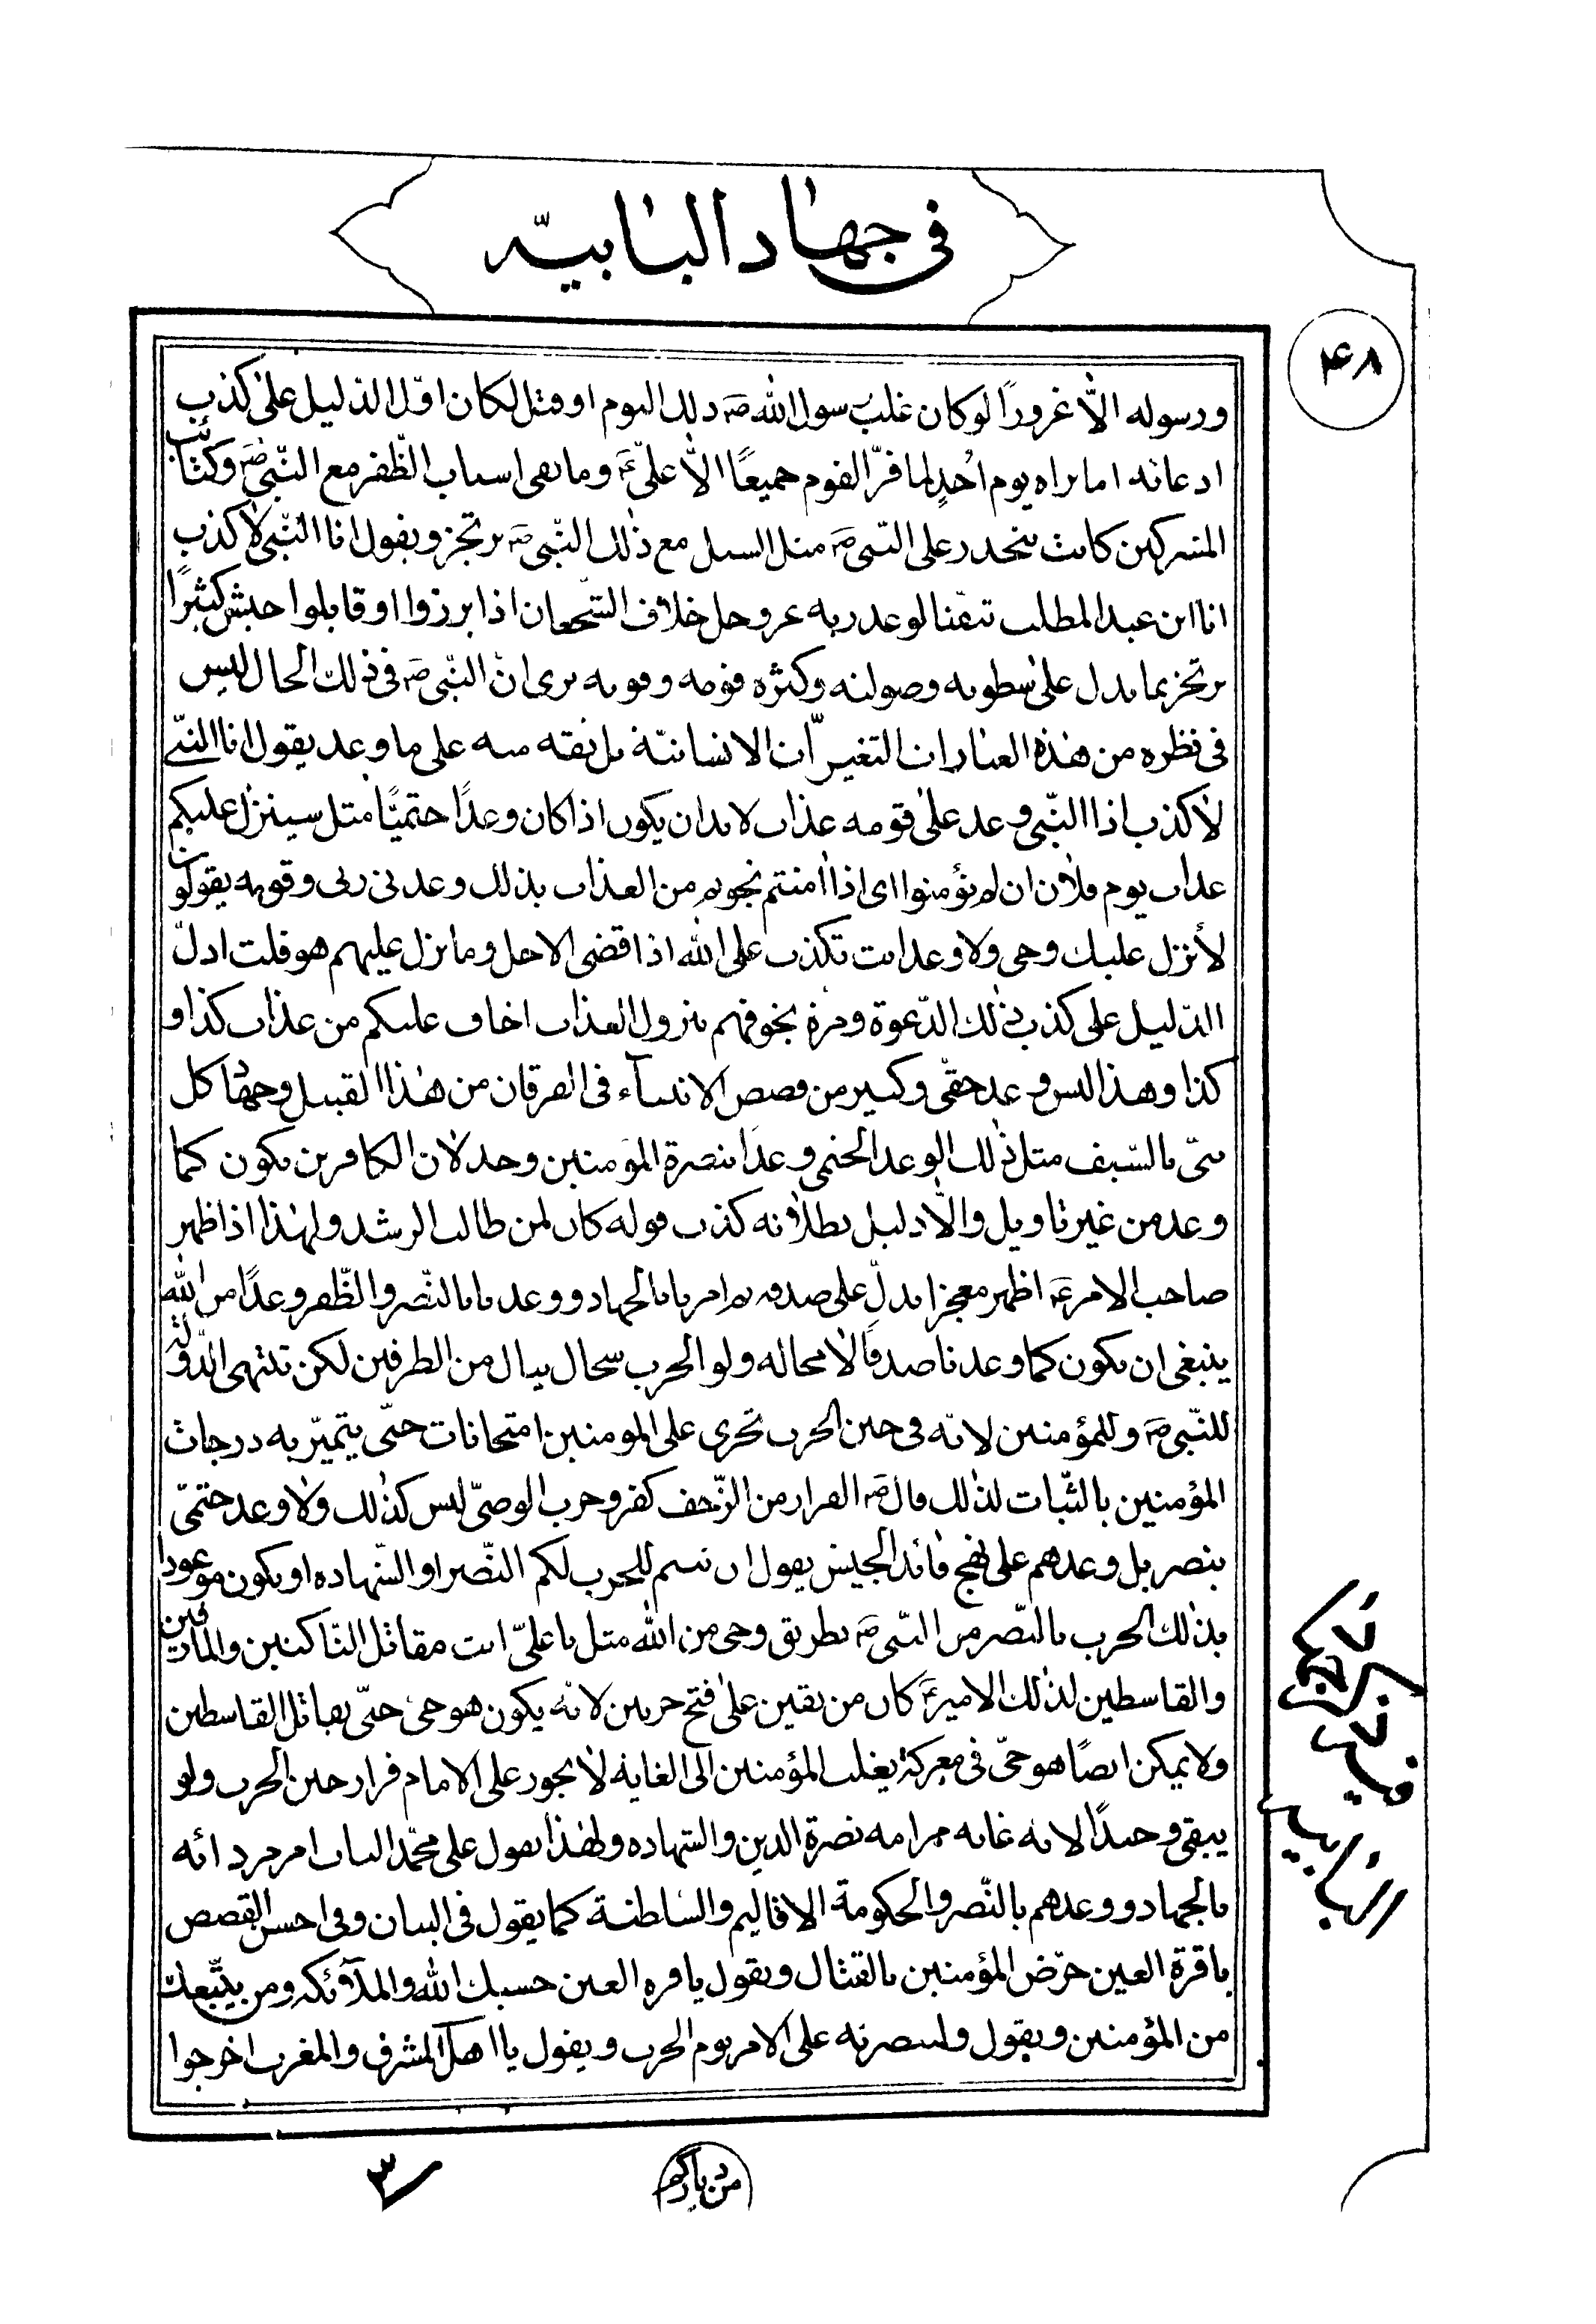 في جهاد البابيّه
۴۸
ورسوله الّا غرورًا لو كان غلب رسول الله ص ذلك اليوم او قتل لكان اوّل الدّليل على كذب
ادعائه اما تراه يوم اُحدٍ لما فرّ القوم جميعًا الّا عليّ ع وما بقى اسباب الظّفر مع النّبي ص وكتائب
المشركين كانت تنحدر على النّبي ص مثل السيل مع ذلك النّبي ص يرتجز ويقول انا النّبي لا كذب
انا ابن عبد المطلب تيقّنا لوعد ربه عز وجل خلاف الشّجعان اذا برزوا او قابلوا جيش كثيرًا
يرتجز بما يدل على سطوته وصولته وكثرة قومه وقوته يرى انّ النّبي ص في ذلك الحال ليس
في نظره من هذه العبارات التغيّرات الانسانيّة بل ثقته منه على ما وعد يقول انا النّبي
لا كذب اذا النّبي وعد على قومه عذاب لابد ان يكون اذا كان وعدًا حتميًّا مثل سينزل عليكم
عذاب يوم فلان ان لم تؤمنوا اى اذا امنتم نجوتم من العذاب بذلك وعدني ربي وقومه يقولون
لا نزل عليك وحي ولا وعد انت تكذب على الله اذا قضى الاجل وما نزل عليهم هو قلت ادلّ
الدّليل على كذب ذلك الدّعوة ومرة يخوفهم بنزول العذاب اخاف عليكم من عذاب كذا و
كذا وهذا ليس وعد حقّي وكثير من قصص الانبياء في الفرقان من هذا القبيل وجهاد كل
نبيّ بالسّيف مثل ذلك الوعد الحتمي وعدًا بنصرة المؤمنين وخذلان الكافرين يكون كما
وعد من غير تاويل والّا دليل بطلانه كذب قوله كان لمن طالب الرشد ولهذا اذا ظهر
صاحب الامر ع اظهر معجزا يدلّ على صدقه ثم امرنا بالجهاد ووعدنا بالنّصر والظّفر وعدًا من الله
ينبغي ان يكون كما وعدنا صدقًا لا محاله ولو الحرب سجال ينال من الطرفين لكن تنتهي الدّولة
للنّبي ص وللمؤمنين لانّه في حين الحرب تجري على المومنين امتحانات حتّى يتميّز به درجات
المؤمنين بالثّبات لذلك قال ص الفرار من الزّحف كفر وحرب الوصيّ ليس كذلك ولا وعد حتميّ
بنصر بل وعدهم على نهج قائد الجيش يقول ان نسم للحرب لكم النّصر او الشّهاده او يكون موعودا
بذلك الحرب بالنّصر من النّبي ص بطريق وحي من الله مثل يا عليّ انت مقاتل النّاكثين والمارقين
والقاسطين لذلك الامير ع كان من يقين على فتح حربين لانه يكون هو حي حتّى يقاتل القاسطين
ولا يمكن ايضًا هو حيّ في معركة يغلب المؤمنين الى الغايه لا يجوز على الامام فرار حين الحرب ولو
يبقى وحيدًا لانه غايه مرامه نصرة الدين والشهاده ولهذا نقول على محمّد الباب امر مردائه
بالجهاد ووعدهم بالنّصر والحكومة الاقاليم والسّلطنة كما يقول في البيان وفي احسن القصص
يا قرة العين حرّض المؤمنين بالقتال ويقول يا قره العين حسبك الله والملآئكه ومن يتّبعك
من المؤمنين ويقول ولتنصرنه على الامر يوم الحرب ويقول يا اهل المشرق والمغرب اخرجوا
البابيه
من دياركم
۳